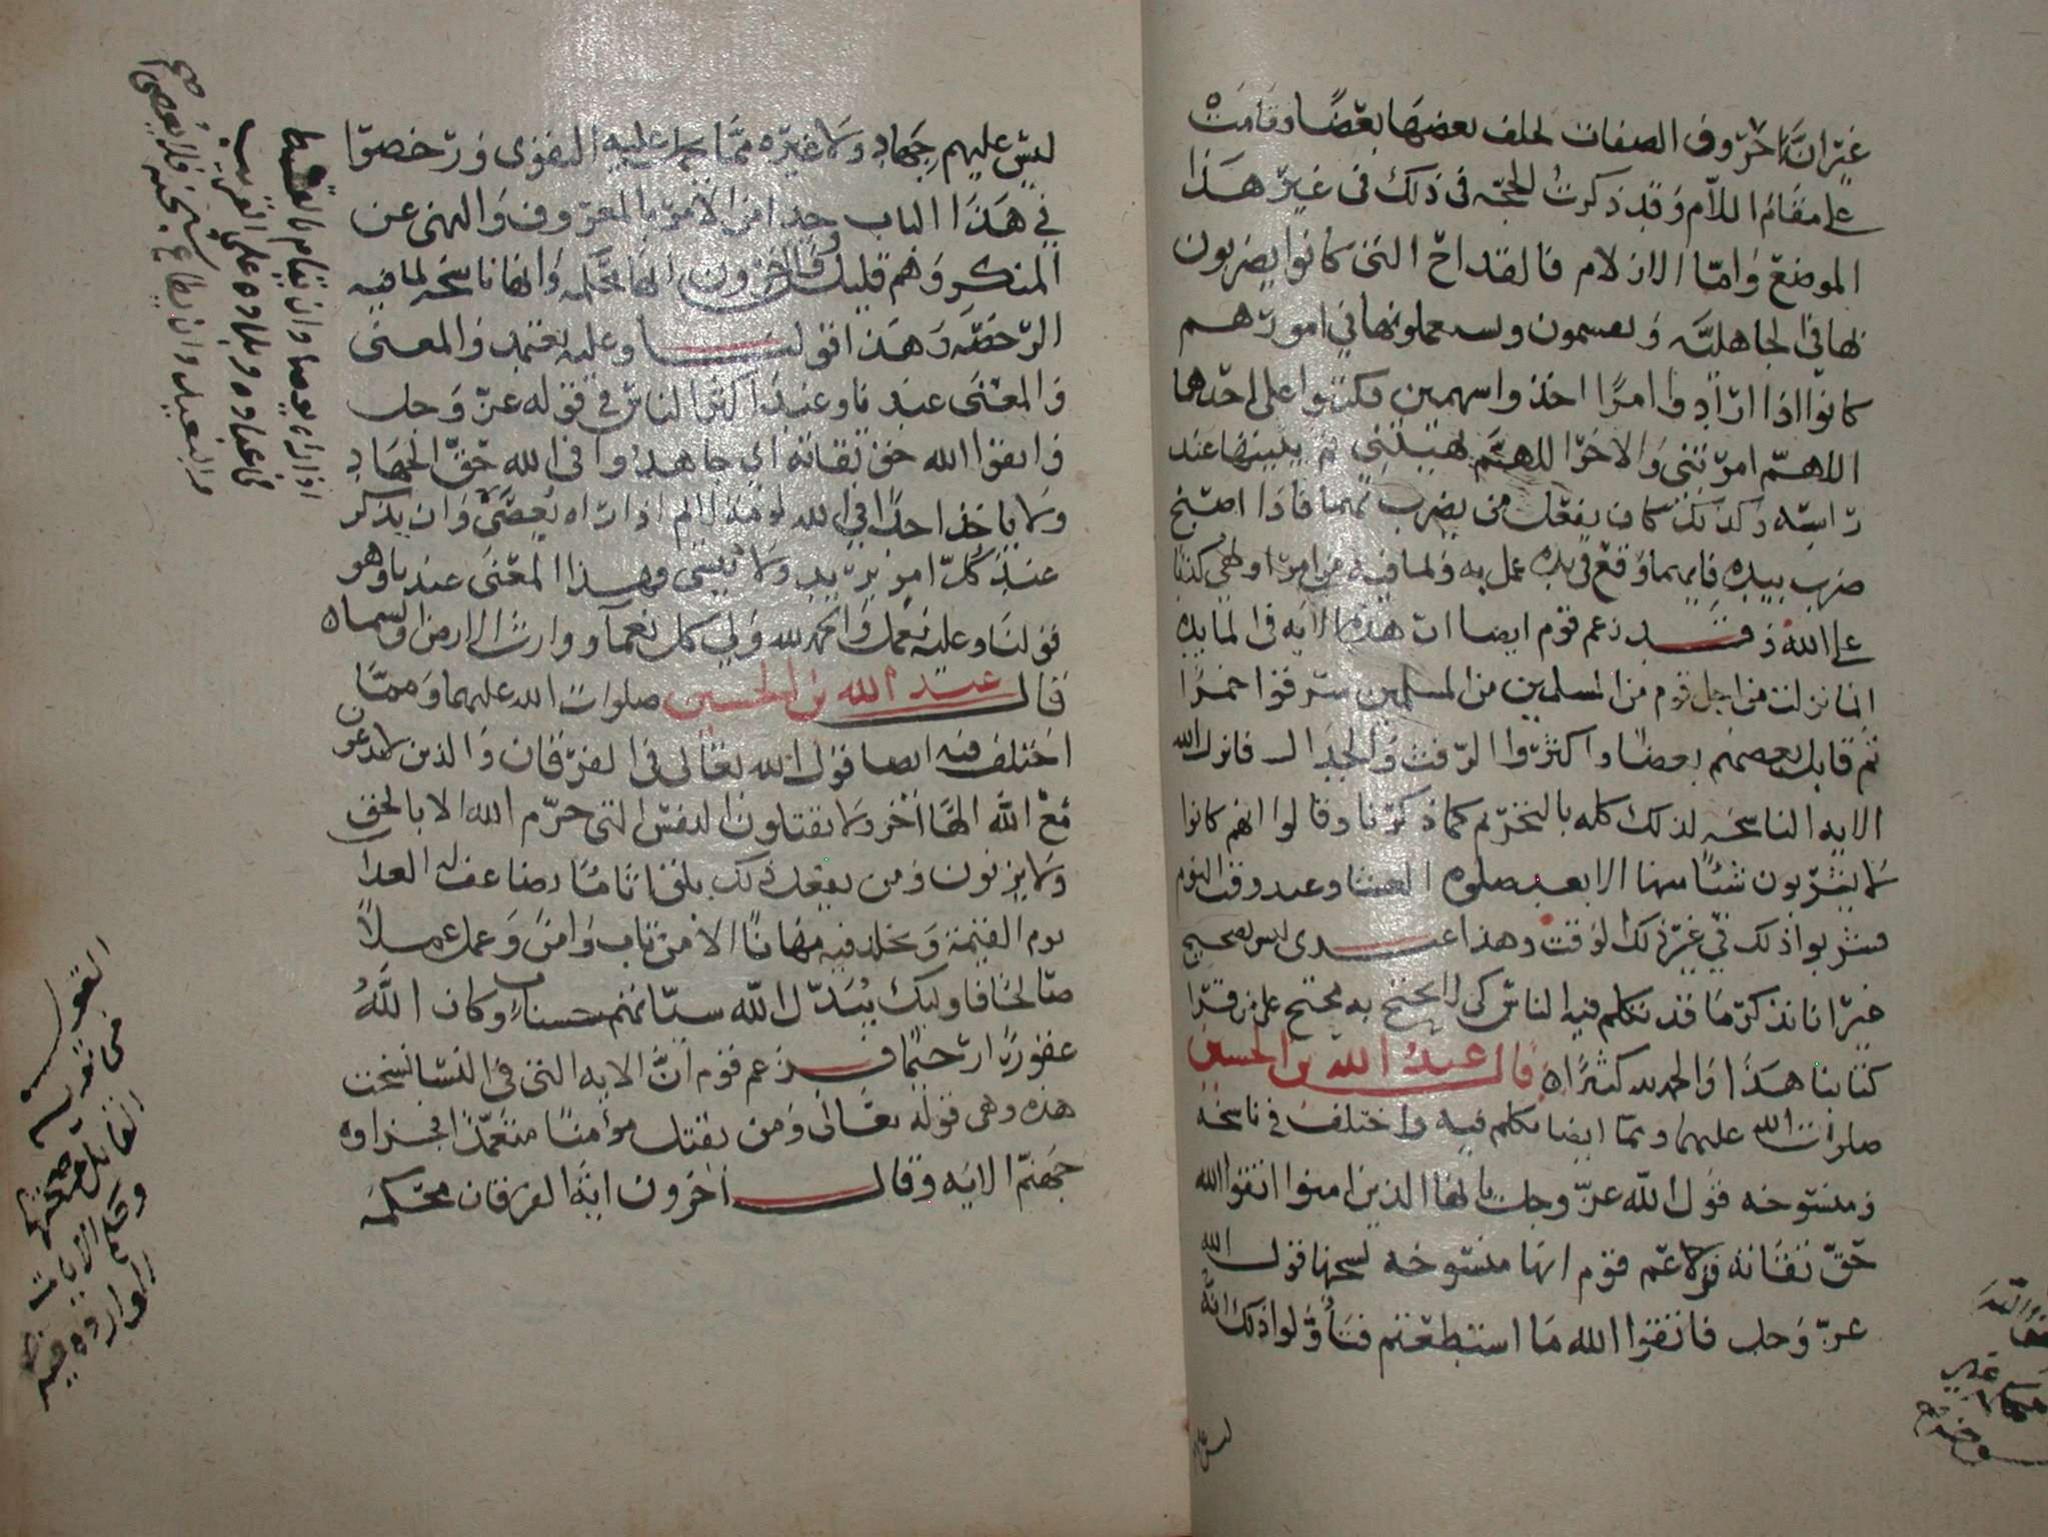 غير ان حروف الصفات تخلف بعضها بعضا وقامت
على مقام اللام وقد ذكرت الحجه فى ذلك فى غير هذا
الموضع واما الازلام فالقداح التى كانوا يضربون
بها فى الجاهليه ويقسمون ويستعملونها فى امورهم
كانوا اذا ارادوا امرا اخذوا سهمين فكتبوا على احدهما
اللاهم امرتنى والاخر اللهم نهيتنى ثم يبيتها عند
راسه وكذلك كان يفعل من يضرب بهما فاذا اصبح
ضرب بيده فايهما وقع فى يده عمل به ولما فيه من امر او نهى كذبا
على الله وقد زعم قوم ايضا ان هذه الايه فى المايده
انما نزلت من اجل قوم من المسلمين من المسلمين سرقوا خمرا
ثم قاتل بعضهم بعضا واكثروا الرفث والجدال فانزل الله
الايه الناسخه لذلك كله بالتحريم كما ذكرنا وقالوا انهم كانوا
لا يشربون شئا منها الا بعد صلوه العشا وعند وقت النوم
فشربوا ذلك فى غير ذلك الوقت وهذا عندى ليس بصحيح
غير انا نذكر ما قد تكلم فيه الناس كى لا يحتج به محتج على من قرا
كتابنا هذا والحمد لله كثيرا ه قال عبد الله بن الحسين
صلوات الله عليهما ومما ايضا تكلم فيه واختلف فى ناسخه
ومنسوخه قول الله عز وجل يا ايها الذين امنوا اتقوا الله
حق تقاته فزعم قوم انها منسوخه نسخها قول الله
عز وجل فاتقوا الله ما استطعتم فتاولوا ذلك انه
ليس عليهم
ليس عليهم جهاد ولا غيره مما عليه التقوى ورخصوا
فى هذا الباب جدا من الامر بالمعروف والنهى عن
المنكر وهم قليل وقال اخرون انها محكمه وانها ناسخه لما فيه
الرخصه وهذا قولنا وعليه نعتمد والمعنى
والمعنى عندنا وعند اكثر الناس فى قوله عز وجل
واتقوا الله حق تقاته اى جاهدوا فى الله حق الجهاد
ولا ياخذ احدا فى الله لومة لايم اذا راه يعصى وان يذكر
عند كل امر يريد ولا ينسى فهذا المعنى عندنا وهو
قولنا وعليه نعمل والحمد لله ولى كل نعما ووارث الارض والسماه
قال عبد الله بن الحسين صلوات الله عليهما ومما
اختلف فيه ايضا قول الله تعالى فى الفرقان والذين لا يدعون
مع الله الها اخر ولا يقتلون النفس التى حرم الله الا بالحق
ولا يزنون ومن يفعل ذلك يلق اثاما يضاعف له العذاب
يوم القيمة ويخلد فيه مهانا الا من تاب وامن وعمل عملا
صالحا فاوليك يبدل الله سياتهم حسنات وكان الله
غفورا رحيما فزعم قوم ان الايه التى فى النسا نسخت
هذه وهى قوله تعالى ومن يقتل مؤمنا متعمدا فجزاوه
جهنم الايه وقال اخرون اية الفرقان محكمه
اذا راه يعصا وان يقام بالقسط
فى عباده وبلاده على القريب
والبعيد وان يطاع